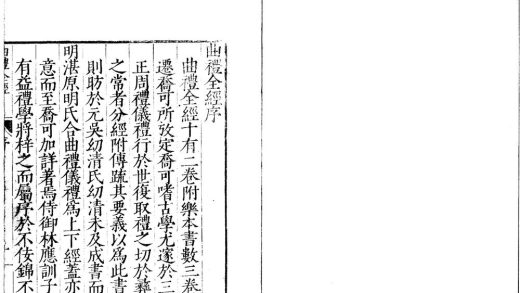 曲禮全經序
曲禮全經十有二卷附樂本書數三卷
遷喬可所攷定喬可嗜古學尤邃於三
正周禮儀禮行於世復取禮之切於彞
之常者分經附傳疏其要義以爲此書
則昉於元吳幼清氏幼清未及成書而
明湛原明氏合曲禮儀禮爲上下經蓋亦
意而至喬可加詳者焉侍御林應訓子
有益禮學將梓之而屬序於不佞錦不
曲禮全經 序